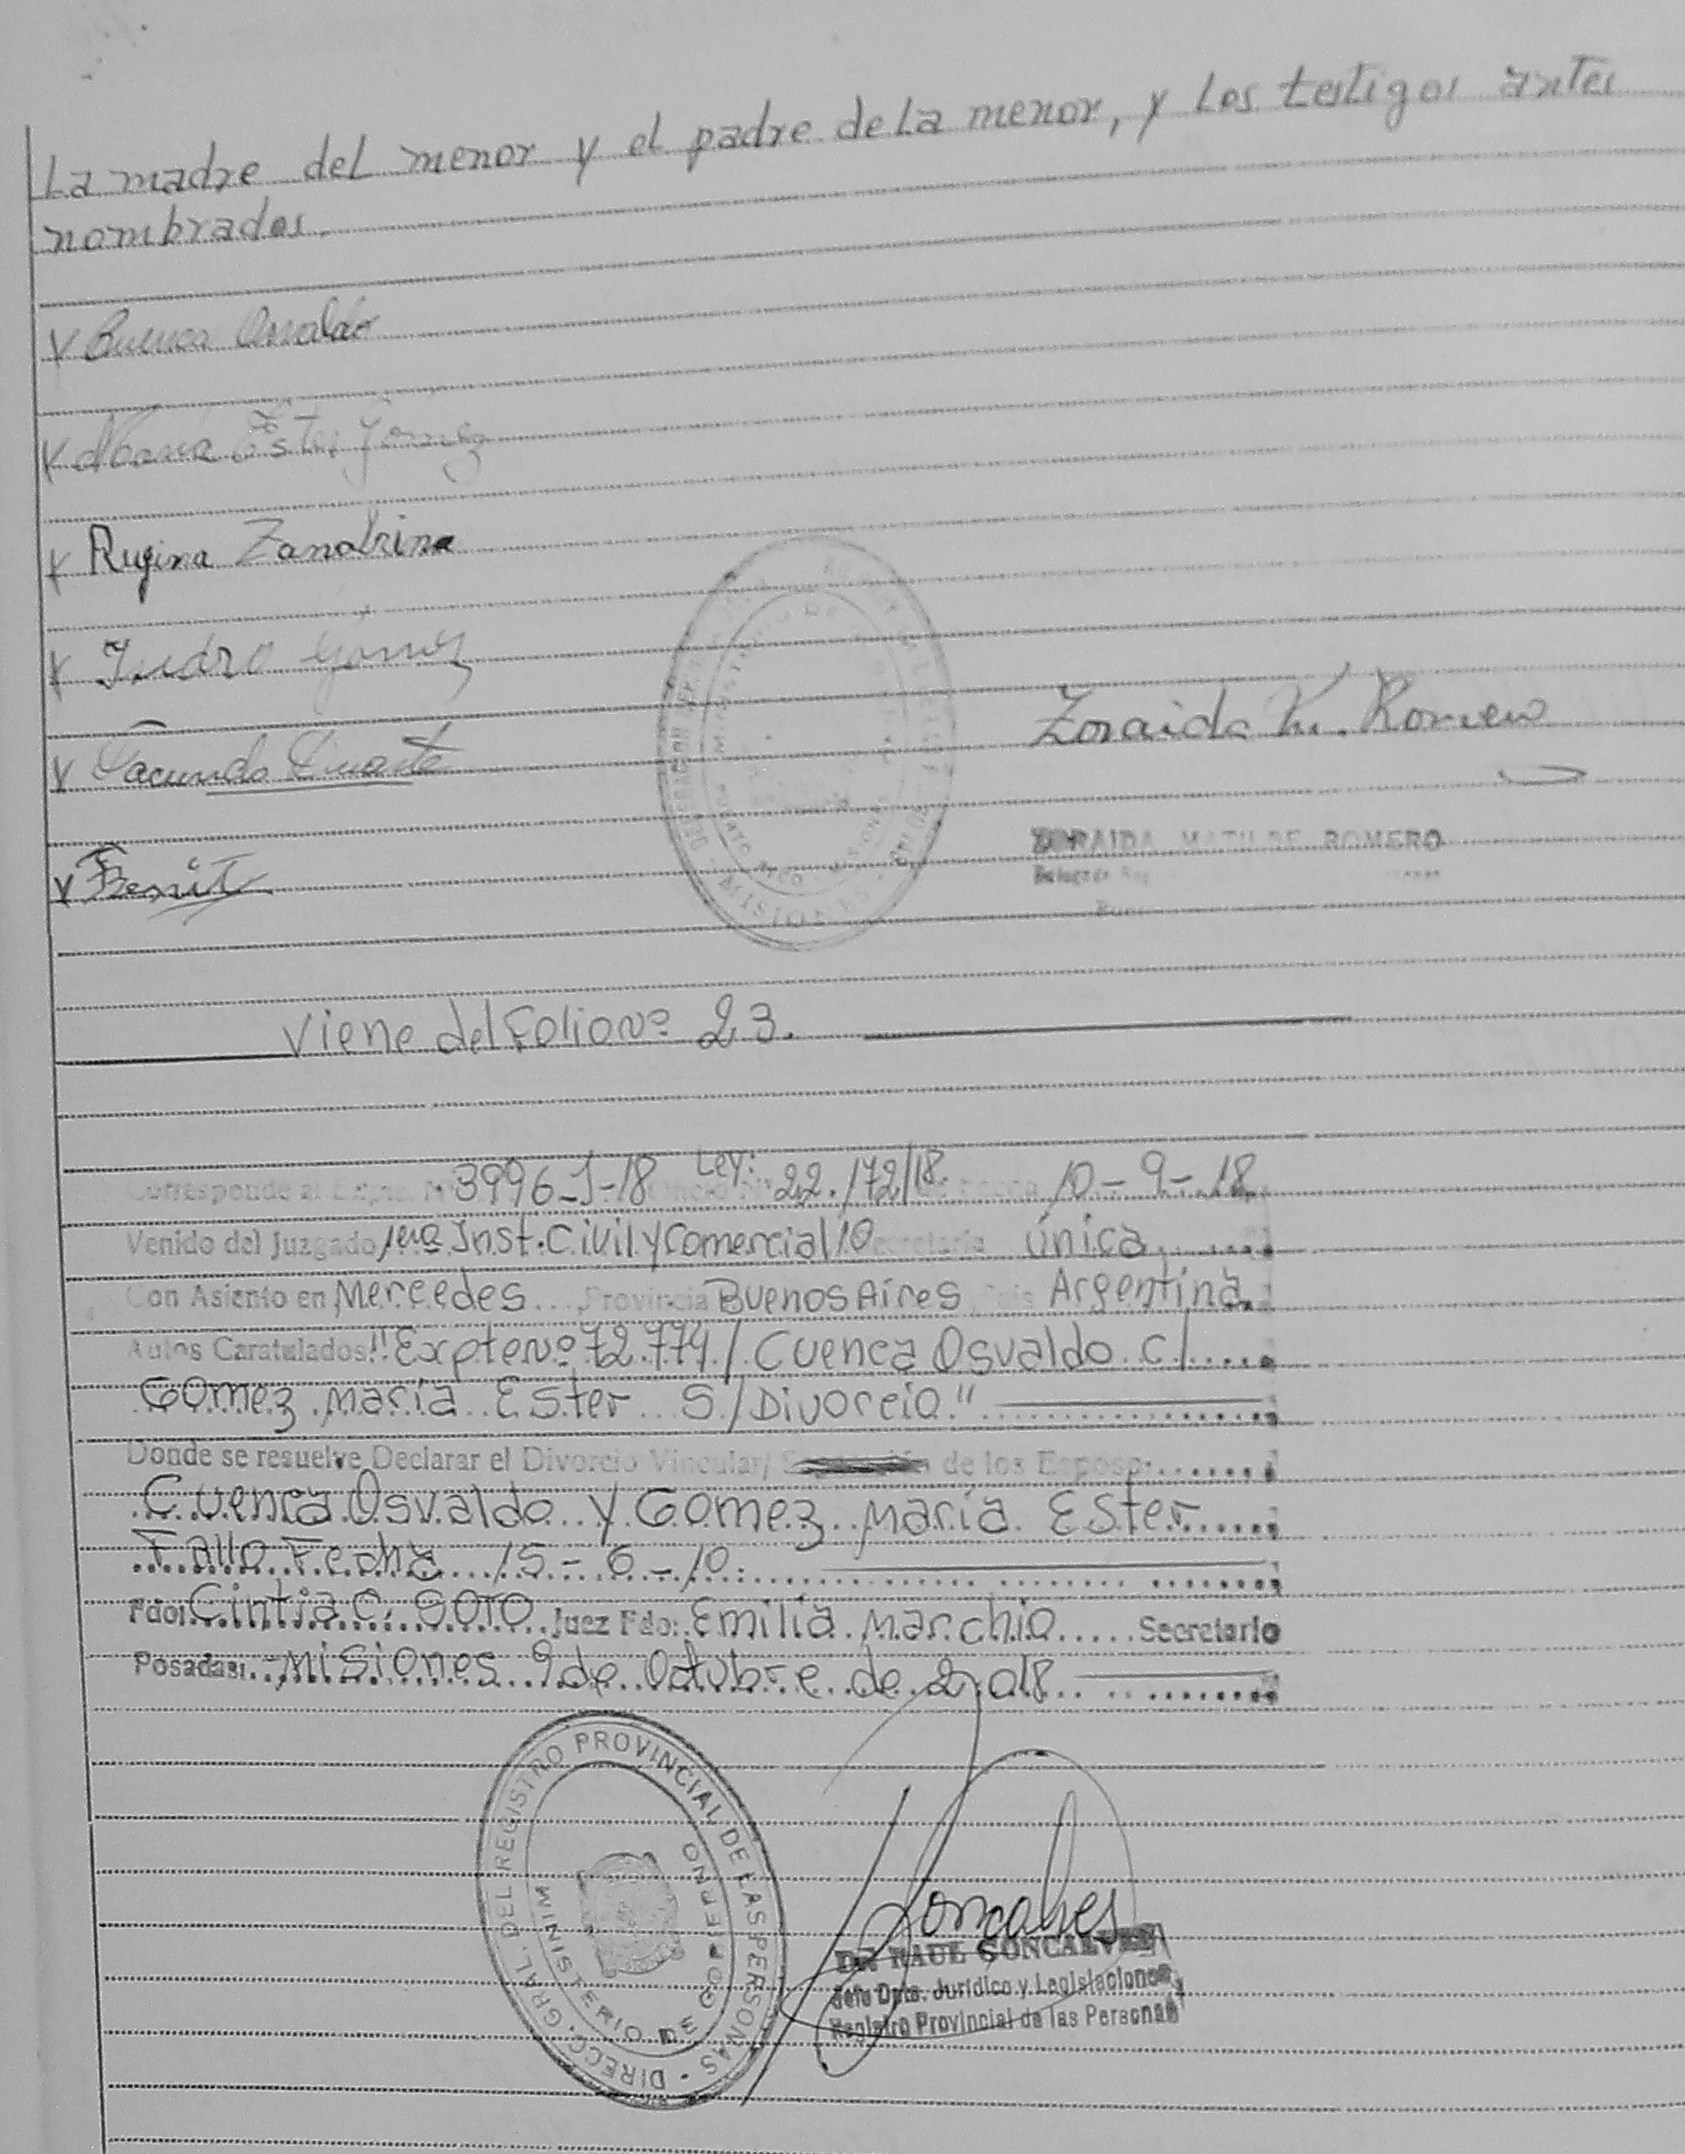 La madre del menor y el padre de la menor, y Los testigos antes
nombrados.
Cuenca Osvaldo
María Ester Gomez
Regina Zanabrina
Isidro Gómez
Facundo Duarte
Zoraida M. Romero
ZORAIDA MATILDE ROMERO
Benit
Viene del Folio Nº 23.
Corresponde al Expte. Nº 3996-J-18 Ley: 22.172/18 Fecha 10-9-18
Venido del Juzgado 1era Inst. Civil y Comercial 10 Secretaría única
Con Asiento en Mercedes Provincia Buenos Aires País Argentina
Autos Caratulados "Expte Nº 72.774/ Cuenca Osvaldo c/
Gomez María Ester S/Divorcio"
Donde se resuelve Declarar el Divorcio Vincular/ de los Esposos
Cuenca Osvaldo y Gomez María Ester
Fallo Fecha 15-6-10
Fdo: Cintia C. SOTO Juez Fdo: Emilia Marchio Secretario
Posadas: Misiones 9 de Octubre de 2.018
DIRECC. GRAL. DEL REGISTRO PROVINCIAL DE LAS PERSONAS
MINISTERIO DE GOBIERNO
Goncalves
Dr. RAUL GONCALVES
Jefe Dpto. Jurídico y Legislaciones
Registro Provincial de las Personas